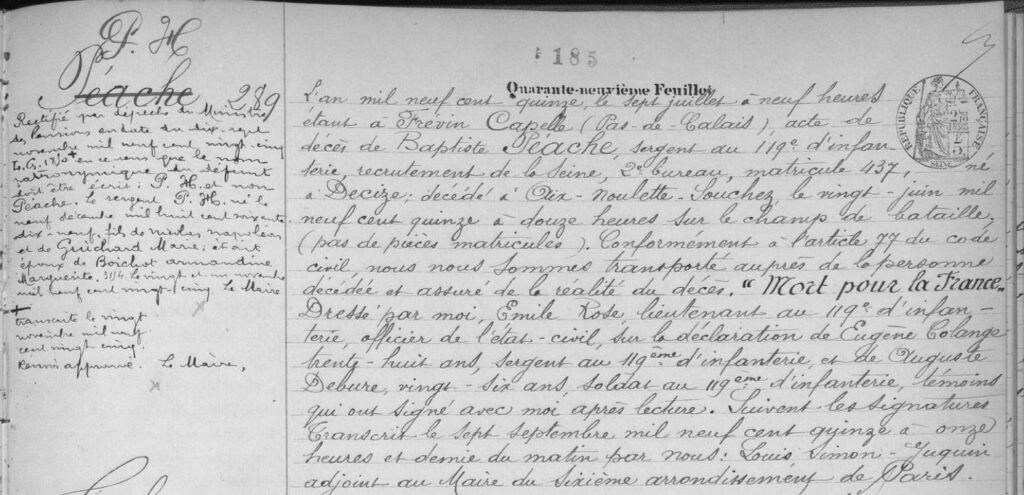 185
Quarante-neuvième Feuillet
P. H
Péache 239
Rectifié par dépêche du Ministre
des Pensions en date du dix-sept
novembre mil neuf cent vingt cinq
en ce sens que le nom
patronymique du défunt
doit être écrit : P. H. et non
Péache. Le sergent P. H. né le
neuf décembre mil huit cent soixante
dix-neuf, fils de Nicolas Napoléon
et de Guichard Marie ; était
époux de Boichot Armandine
Marguerite, Le vingt et un novembre
mil neuf cent vingt cinq. Le Maire
+
transcrite le vingt
novembre mil neuf
cent vingt cinq.
Renvoi approuvé. Le Maire,
L'an mil neuf cent quinze, le sept juillet à neuf heures
étant à Frévin Capelle (Pas-de-Calais) acte de
décès de Baptiste Péache, sergent au 119e d'infan-
terie, recrutement de la Seine, 2e bureau, matricule 437, né
à Decize ; décédé à Aix-Noulette-Souchez le vingt-juin mil
neuf cent quinze à douze heures sur le champ de bataille,
(pas de pièces matricules). Conformément à l'article 77 du code
civil, nous nous sommes transporté auprès de la personne
décédée et assuré de la réalité du décès. "Mort pour la France"
Dressé par moi, Emile Rose lieutenant au 119e d'infan-
terie, officier de l'état-civil, sur la déclaration de Eugène Colange
trente-huit ans, sergent au 119ème d'infanterie, et de Auguste
Debure, vingt-six ans, soldat au 119ème d'infanterie, témoins
qui ont signé avec moi après lecture. Suivent les signatures
Transcrit le sept septembre mil neuf cent quinze à onze
heures et demie du matin par nous : Louis Simon-Juquin
adjoint au Maire du sixième arrondissement de Paris.
RÉPUBLIQUE FRANÇAISE
SEINE